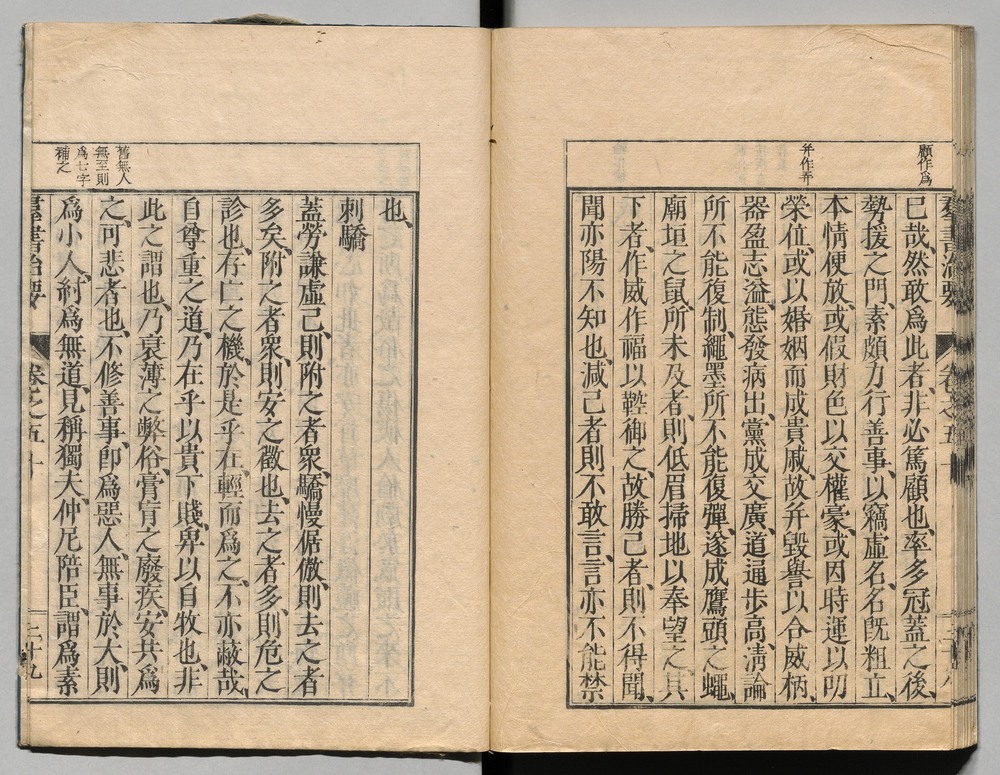 顧作爲
弁作弄
羣書治要 卷之五十
已哉、然敢爲此者、非必篤顧也、率多冠蓋之後、
勢援之門、素頗力行善事、以竊虛名、名旣粗立、
本情便放、或假財色以交權豪、或因時運以叨
榮位、或以婚姻而成貴戚、故弁毀譽以合威柄、
器盈志溢、態發病出、黨成交廣、道通步高、淸論
所不能復制、繩墨所不能復彈、遂成鷹頭之蠅、
廟垣之鼠、所未及者、則低眉掃地以奉望之、其
下者、作威作福以鞚御之、故勝己者、則不得聞、
聞亦陽不知也、減己者則不敢言、言亦不能禁
也、
刺驕
蓋勞謙虛己、則附之者衆、驕慢倨傲、則去之者
多矣、附之者衆、則安之徵也、去之者多、則危之
診也、存亡之機、於是乎在、輕而爲之、不亦蔽哉、
自尊重之道、乃在乎以貴下賤、卑以自牧也、非
此之謂也、乃衰薄之弊俗、膏肓之廢疾、安共爲
之、可悲者也、不修善事、卽爲惡人、無事於大、則
爲小人、紂爲無道、見稱獨夫、仲尼陪臣、謂爲素
舊無人
無至則
爲七字
補之
羣書治要 卷之五十 二十九